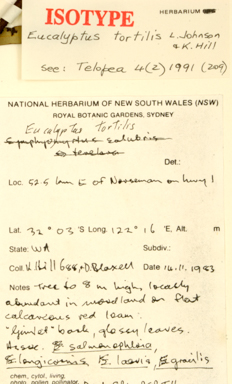 ISOTYPE HERBARIUM
Eucalyptus tortilis L. Johnson
& K. Hill
see: Telopea 4(2) 1991 (209)
NATIONAL HERBARIUM OF NEW SOUTH WALES (NSW)
ROYAL BOTANIC GARDENS, SYDNEY
Eucalyptus tortilis
Symphyomyrtus salubris
Det.:
Loc. 52.5 km E of Norseman on hwy 1
Lat. 32° 03'S Long. 122° 16'E. Alt. m
State: WA Subdiv.:
Coll. K. Hill 688, D. Blaxell Date 14.11.1983
Notes Tree to 8 m high, locally
abundant in woodland on flat
calcareous red loam.
"Gimlet" bark, glossy leaves.
Assoc. E. salmonophloia,
E. longicornis, E. laevis, E. gracilis
chem, cytol, living,
photo, pollen, pollinator,